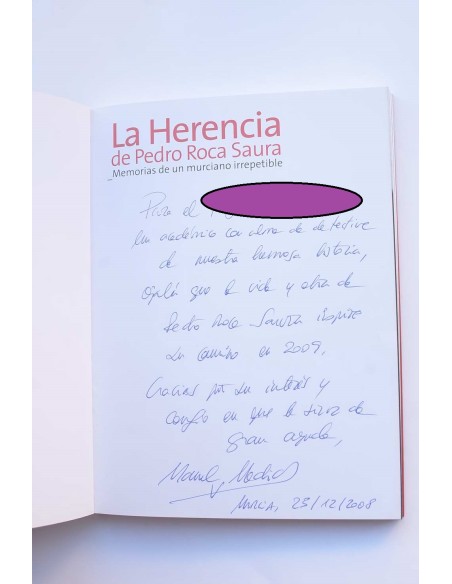 La Herencia
de Pedro Roca Saura
_Memorias de un murciano irrepetible
Para el
un académico con alma de detective
de nuestra hermosa historia,
Ojalá que la vida y obra de
Pedro Roca Saura inspire
su camino en 2009.
Gracias por su interés y
confío en que le sirva de
gran ayuda,
Manuel Madrid
Murcia, 23/12/2008